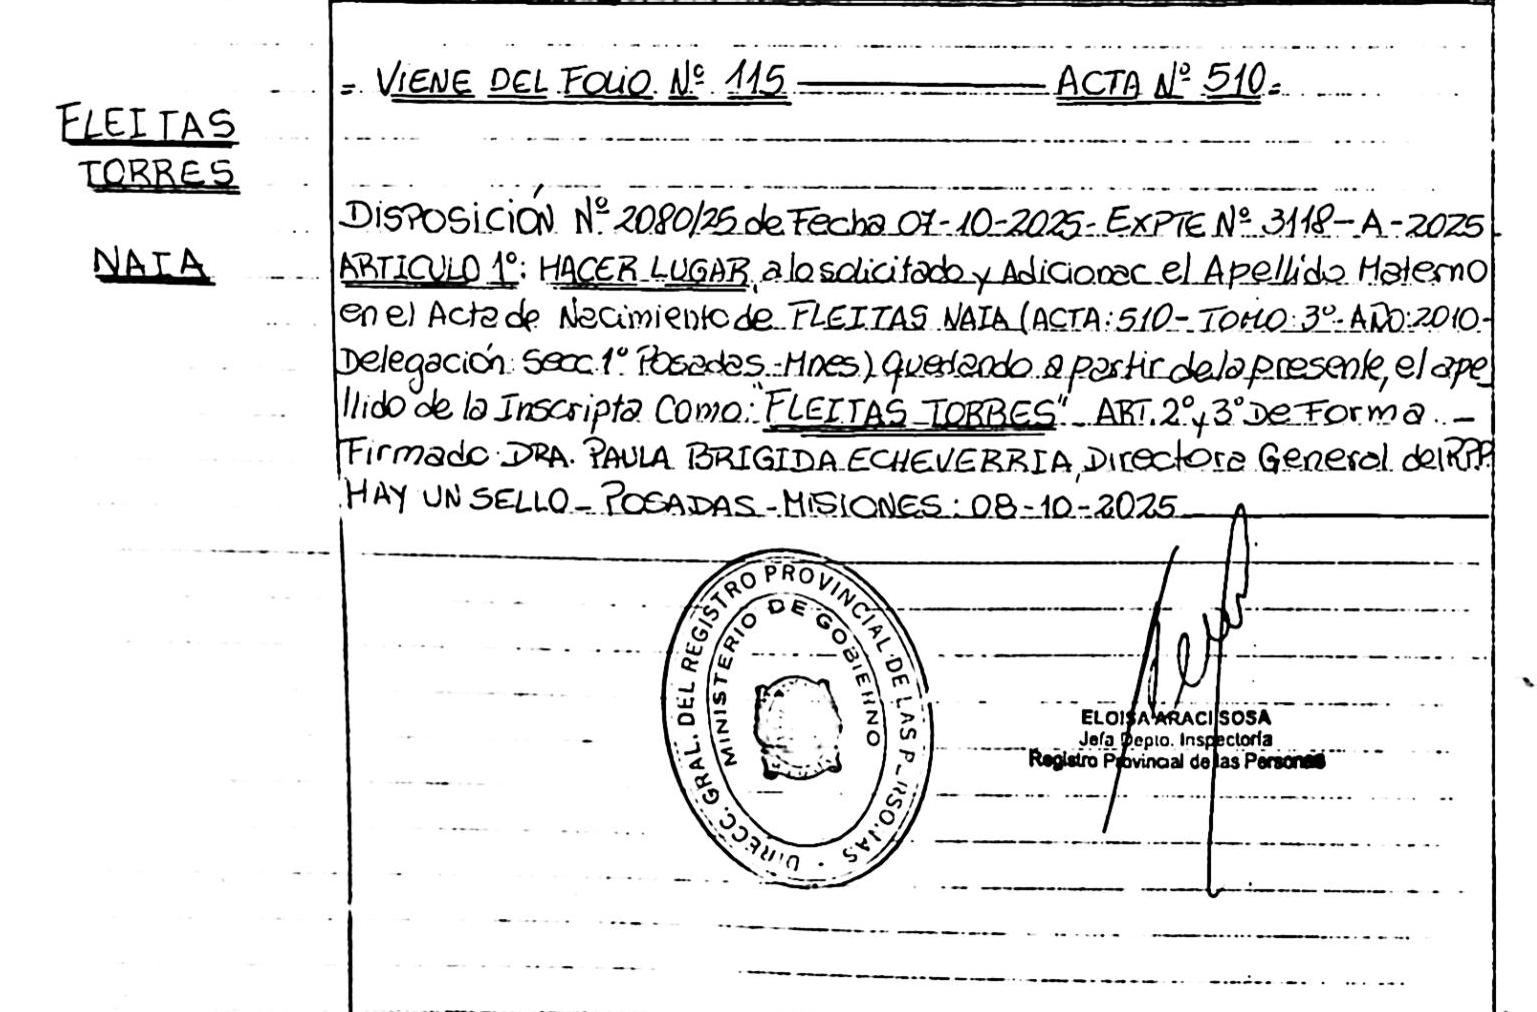 = VIENE DEL FOLIO Nº 115 ——— ACTA Nº 510=
FLEITAS
TORRES
NAIA
DISPOSICIÓN Nº 2080/25 de Fecha 07-10-2025- EXPTE Nº 3118-A-2025
ARTICULO 1º: HACER LUGAR, a lo solicitado y Adicionar el Apellido Materno
en el Acta de Nacimiento de FLEITAS NAIA (ACTA: 510- TOMO: 3º- AÑO: 2010-
Delegación: Secc. 1º Posadas-Mnes) quedando a partir de la presente, el ape_
llido de la Inscripta Como: "FLEITAS TORRES" ART. 2º y 3º De Forma _
Firmado: DRA. PAULA BRIGIDA ECHEVERRIA, Directora General del RPP.
HAY UN SELLO_ POSADAS-MISIONES: 08-10-2025
DIRECC. GRAL. DEL REGISTRO PROVINCIAL DE LAS PERSONAS
MINISTERIO DE GOBIERNO
ELOISA ARACI SOSA
Jefa Depto. Inspectoría
Registro Provincial de las Personas